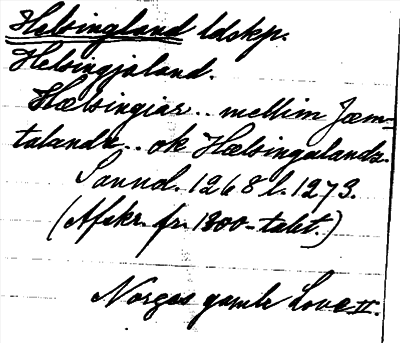 Helsingland ldskp.
Helsingjaland.
Hælsingias.. mellim Jæm-
talandz.. ok Hælsingalandz.
Sannol. 1268 l. 1273.
(Afskr. fr. 1300-talet.)
Norges gamle Love II.